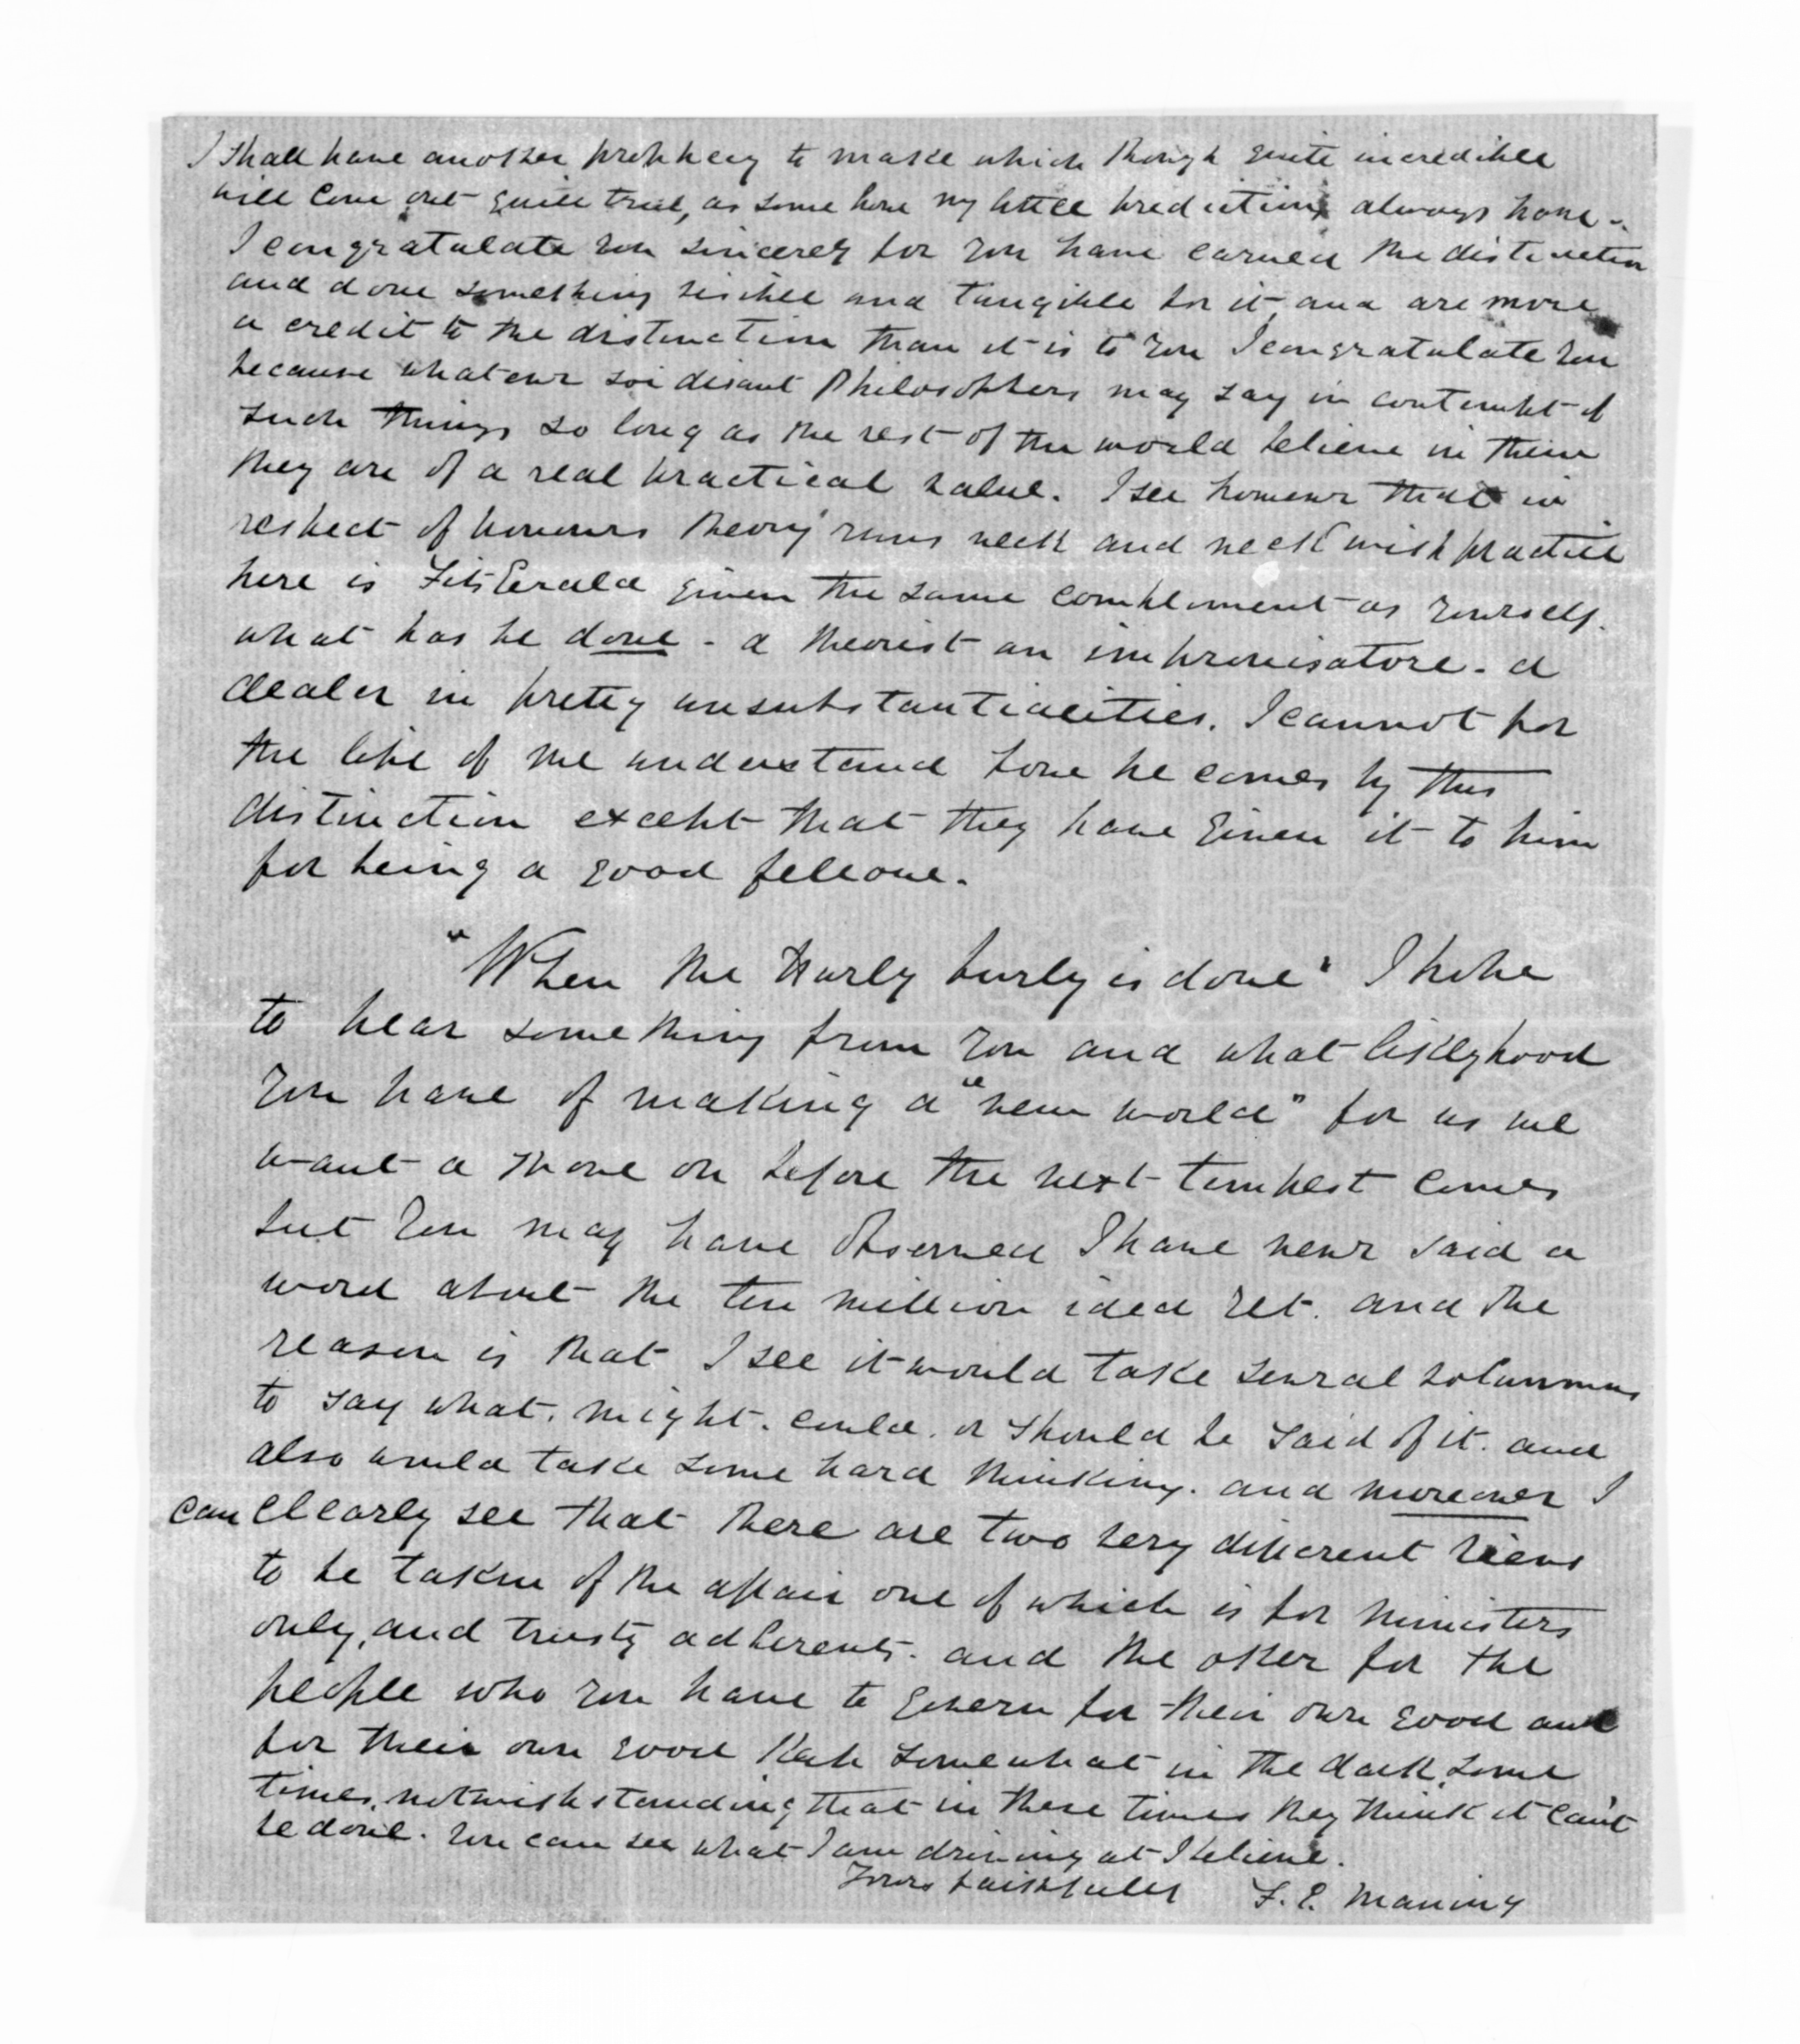 I shall have another prophecy to make which though quite incredible
will come out quite true, as some how my little predictions always have -
I congratulate you sincerely for you have earned the distinction
and done something visible and tangible for it and are more
a credit to the distinction than it is to you I congratulate you
because whatever soi disant Philosophers may say in contempt of
such things so long as the rest of the world believe in them
they are of a real practical value. I see however that in
respect of honours theory runs neck and neck with practice
here is FitzGerald given the same compliment as yourself.
what has he done - a theorist an improvisatore - a
dealer in pretty unsubstantialities. I cannot for
the life of me understand how he comes by this
distinction except that they have given it to him
for being a good fellow.
"When the hurly burly is done" I hope
to hear something from you and what likelyhood
you have of making a "new world" for us we
want a move on before the next tempest comes
but you may have observed I have never said a
word about the ten million idea yet. and the
reason is that I see it would take several volumns
to say what. might. could. or should be said of it. and
also would take some hard thinking. and moreover I
can clearly see that there are two very different views
to be taken of the affair one of which is for ministers
only, and trusty adherents. and the other for the
people who you have to govern for their own good and
for their own good keep somewhat in the dark some
times, notwithstanding that in these times they think it can't
be done. you can see what I am driving at I believe.
Yours faithfully F. E. Maning